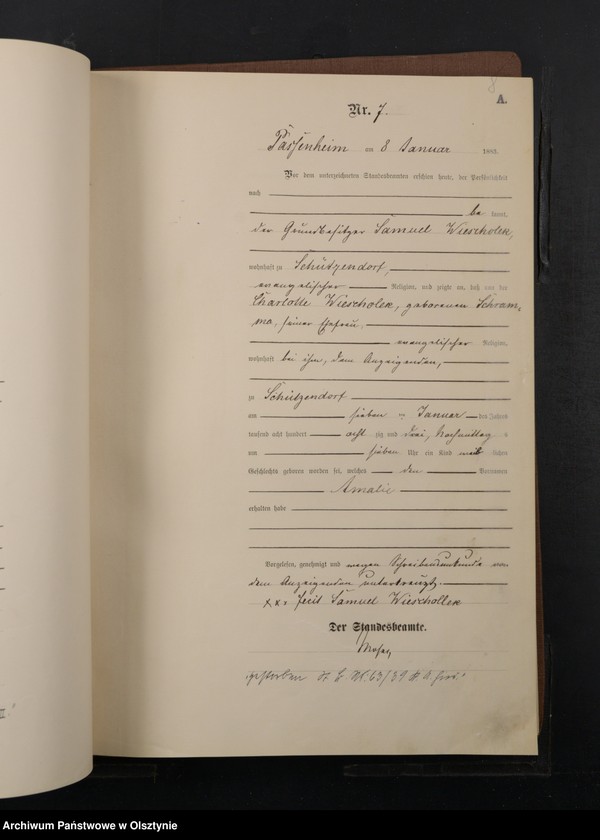 8
A.
Nr. 7.
Passenheim am 8 Januar 1883.
Vor dem unterzeichneten Standesbeamten erschien heute, der Persönlichkeit
nach
be kannt,
der Grundbesitzer Samuel Wiescholek,
wohnhaft zu Schützendorf,
evangelischer Religion, und zeigte an, daß von der
Charlotte Wiescholek, geborenen Schram,,
ma, seiner Ehefrau,
evangelischer Religion,
wohnhaft bei ihm, dem Anzeigenden,
zu Schützendorf
am sieben ten Januar des Jahres
tausend acht hundert acht zig und drei, Nachmittag s
um sieben Uhr ein Kind weib lichen
Geschlechts geboren worden sei, welches den Vornamen
Amalie
erhalten habe
Vorgelesen, genehmigt und wegen Schreibensunkunde von
dem Anzeigenden unterkreuzt.
xxx fecit Samuel Wiescholлек
Der Standesbeamte.
gestorben St. A. 63/39
Archiwum Państwowe w Olsztynie